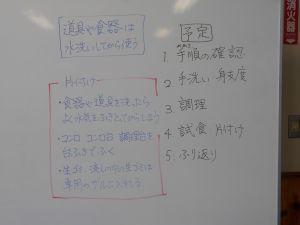 道具や食器は
水洗いしてから使う
片付け
・食器や道具を洗ったら
よく水気をふきとってからしまう
・コンロ コンロ台 調理台を
台ふきでふく
・生ゴミ、流しの中の生ゴミは
専用のザルに入れる
予定
1. 手順の確認
2. 手洗い 身支度
3. 調理
4. 試食 片付け
5. ふり返り
消火器